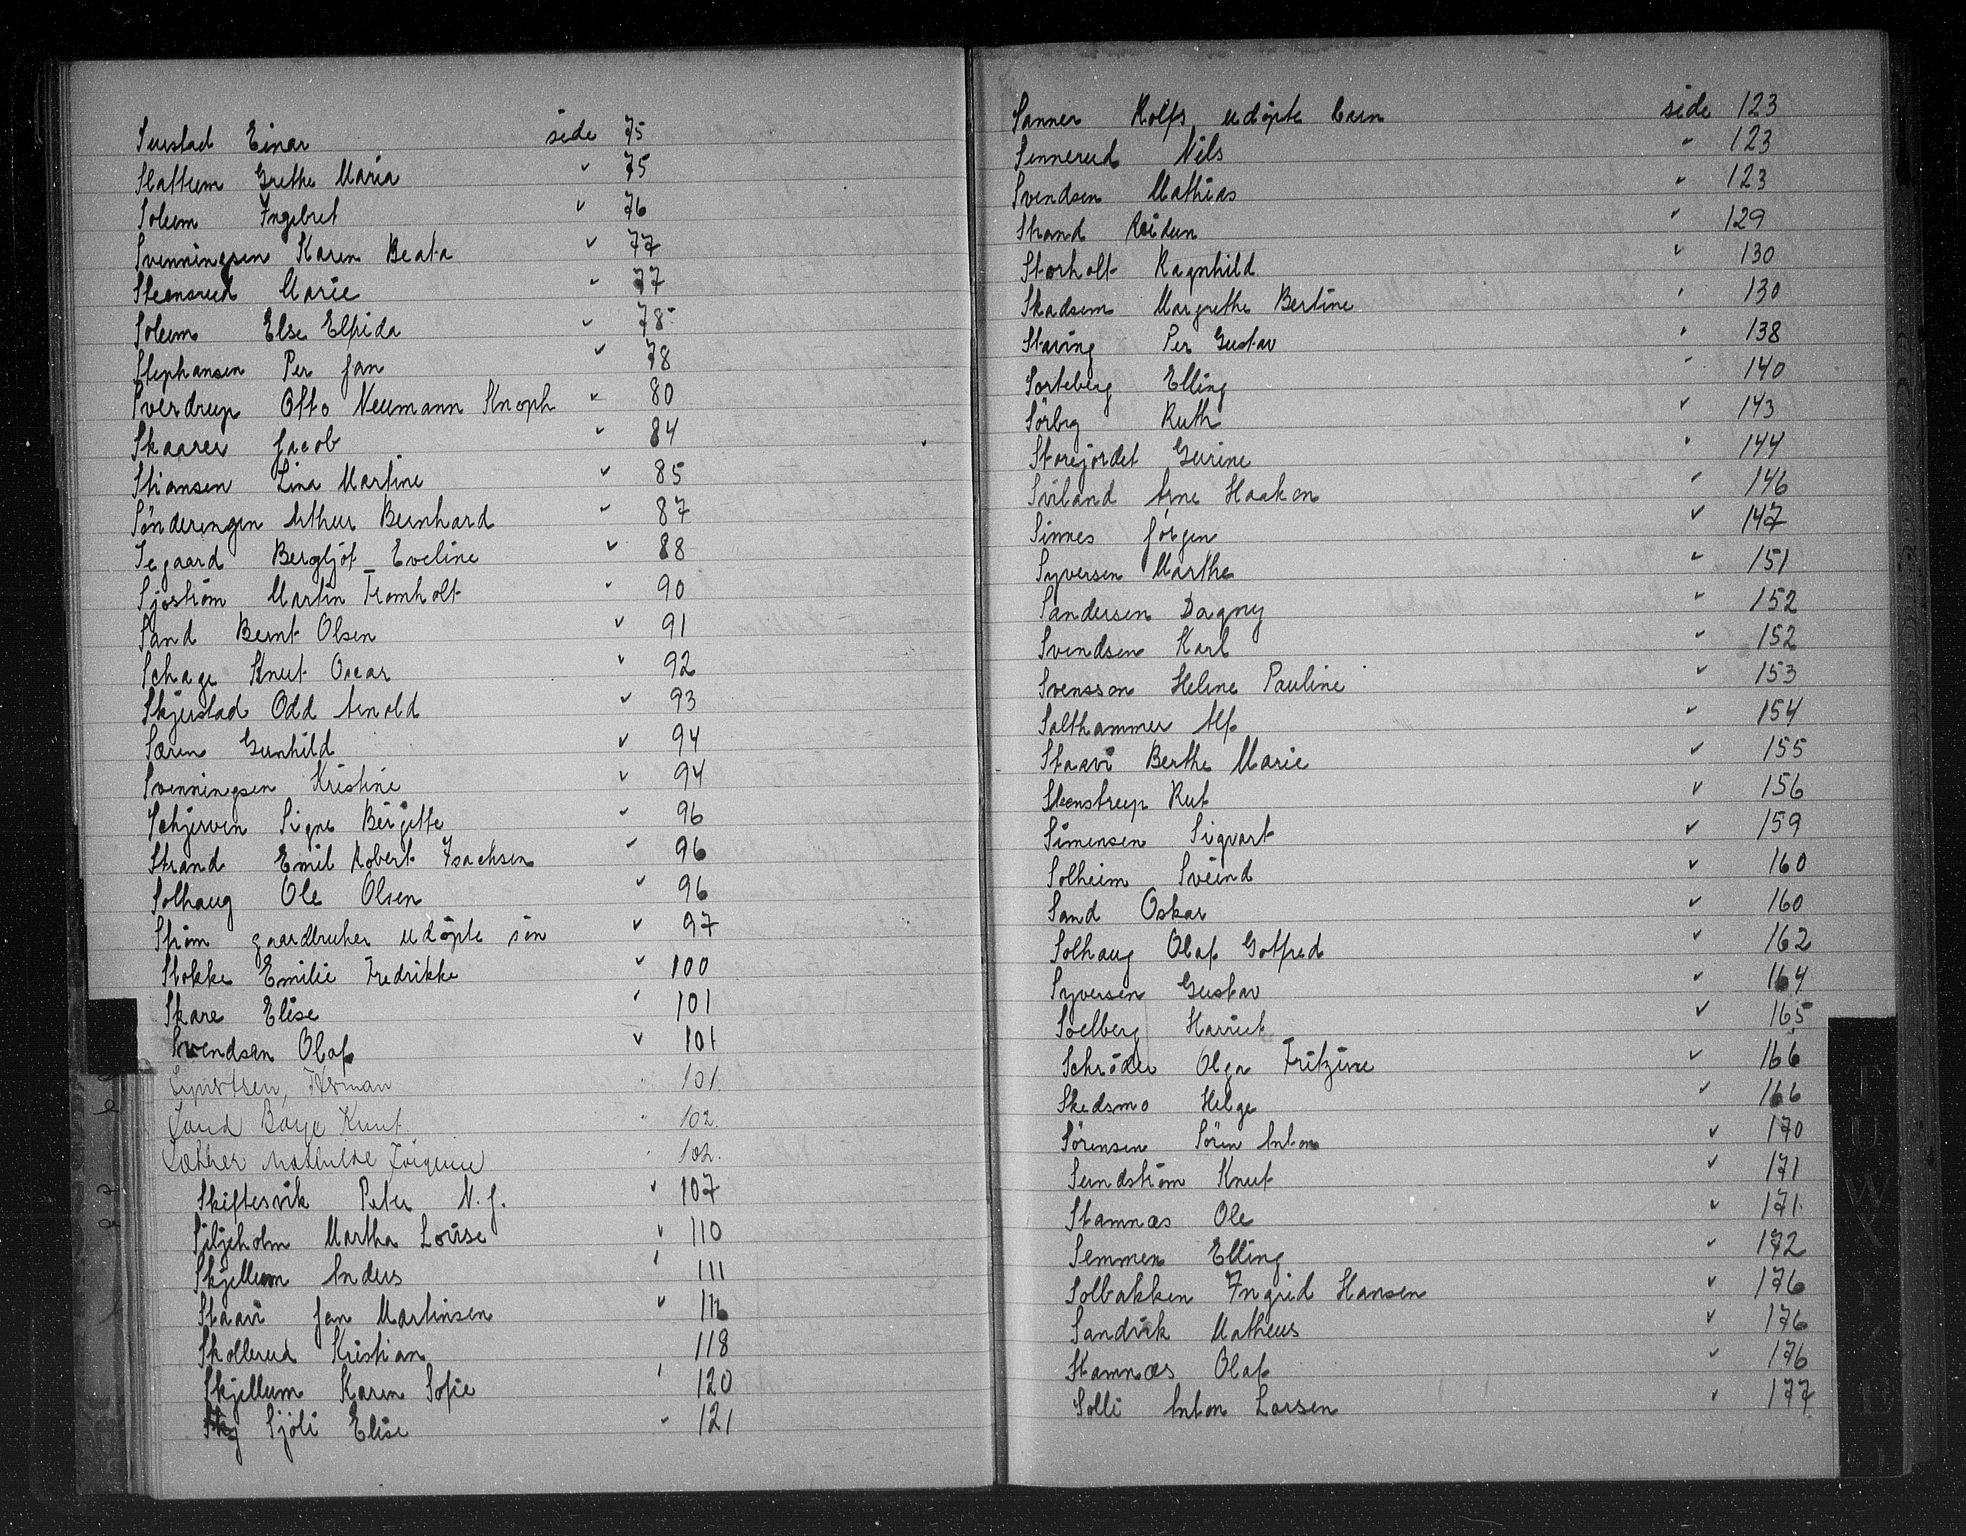 Surstad Einar side 75
Slattum Grethe Maria " 75
Solem Ingebret " 76
Svenningsen Karen Beata " 77
Steensrud Marie " 77
Solem Else Elfrida " 78
Stephansen Per Jan " 78
Sverdrup Otto Neumann Knoph " 80
Skaarer Jacob " 84
Stiansen Lina Martine " 85
Sönderengen Arthur Bernhard " 87
Segaard Bergljot Eveline " 88
Sjöström Martin Tromholt " 90
Sand Bernt Olsen " 91
Schage Knut Oscar " 92
Skjerstad Odd Arnold " 93
Søren Gunhild " 94
Svenningsen Kristine " 94
Schjerven Signe Birgitte " 96
Strand Emil Robert Isachsen " 96
Solhaug Ole Olsen " 96
Ström gaardbruker udöpte sön " 97
Stokke Emilie Fredrikke " 100
Skare Elise " 101
Svendsen Olaf " 101
Syvertsen, Herman " 101.
Sand Børge Knut " 102.
Sæther Mathilde Jörgine " 102.
Skiftesvik Peter N. J. " 107
Siljeholm Martha Lovise " 110
Skjellum Anders " 111
Staavi Jan Martinsen " 116
Skollerud Kristian 118
Skjellum Karen Sofie " 120
Sjöli Elise " 121
Sanner Rolfs udöpte barn side 123
Sinnerud Nils " 123
Svendsen Mathias " 123
Strand Reidun " 129
Storholt Ragnhild " 130
Skadsem Margrethe Bertine " 130
Staving Per Gustav " 138
Sorteberg Elling " 140
Sörby Ruth " 143
Storejordet Gurine " 144
Sviland Arne Haakon " 146
Sinnes Jörgen " 147
Syversen Marthe " 151
Sandersen Dagny " 152
Svendsen Karl " 152
Svensson Helene Pauline " 153
Salthammer Alf " 154
Staavi Berthe Marie " 155
Steenstrup Rut " 156
Simensen Sigvart " 159
Solheim Sveind " 160
Sand Oskar " 160
Solhaug Olaf Gotfred " 162
Syversen Gustav " 164
Soelberg Harriet " 165
Schröder Olga Fritzine " 166
Skedsmo Helge " 166
Sörensen Sören Anton " 170
Sundström Knut " 171
Stamnæs Ole " 171
Semmen Elling " 172
Solbakken Ingrid Hansen " 176
Sandvik Matheus " 176
Stamnæs Olaf " 176
Solli Anton Larsen " 177